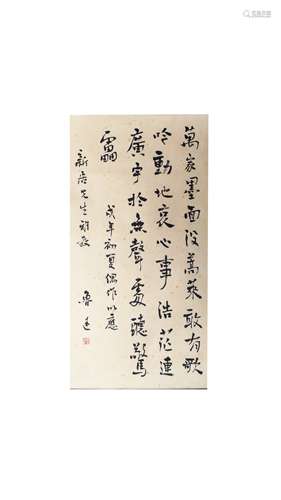 萬家墨面没蒿萊敢有歌
吟動地哀心事浩茫連
廣宇於無聲處聽驚
雷
戌年初夏偶作以應
新居先生雅教
魯迅